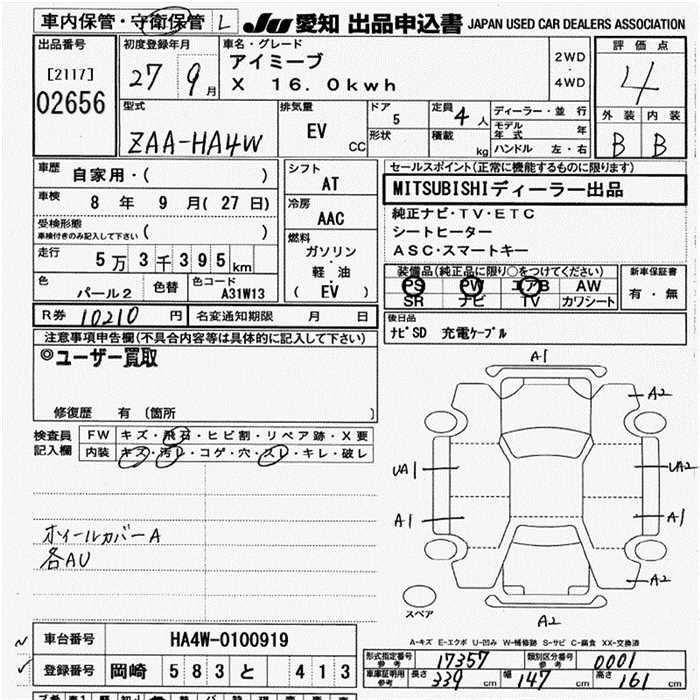 車内保管・守衛保管 L
JU 愛知 出品申込書 JAPAN USED CAR DEALERS ASSOCIATION
出品番号
[2117]
02656
初度登録年月
27 9月
車名・グレード
アイミーブ
X 16.0kwh
2WD
・
4WD
評価点
4
外装 内装
B B
型式
ZAA-HA4W
排気量
EV
CC
ドア
5
形状
定員
4人
積載
kg
ディーラー・並行
モデル年式 年
ハンドル 左・右
車歴
自家用・( )
車検
8年 9月(27日)
受検形態
車検付きのみ記入して下さい ( )
走行
5万3千395km
色
パール2
色替
色コード
A31W13
シフト
AT
冷房
AAC
燃料
ガソリン
・
軽・油
(EV)
セールスポイント(正常に機能するものに限ります)
MITSUBISHIディーラー出品
純正ナビ・TV・ETC
シートヒーター
ASC・スマートキー
装備品(純正品に限り○をつけてください)
PS PW エアB AW
SR ナビ TV カワシート
新車保証書
有・無
R券 10210円
名変通知期限 月 日
後日品
ナビSD 充電ケーブル
注意事項申告欄(不具合内容等は具体的に記入して下さい)
◎ユーザー買取
修復歴 有 〔箇所 〕
検査員
記入欄
FW キズ・飛石・ヒビ割・リペア跡・X要
内装 キズ・汚レ・コゲ・穴・スレ・キレ・破レ
ホイールカバーA
各AU
A1
A2
UA1
UA2
A1
A1
A2
スペア
A2
A-キズ E-エクボ U-凹み W-補修跡 S-サビ C-腐食 XX-交換済
車台番号
HA4W-0100919
登録番号
岡崎 583 と 413
形式指定番号
参考
17357
類別区分番号
参考
0001
車庫証明用
参考
長さ 339cm 幅 147cm 高さ 161cm